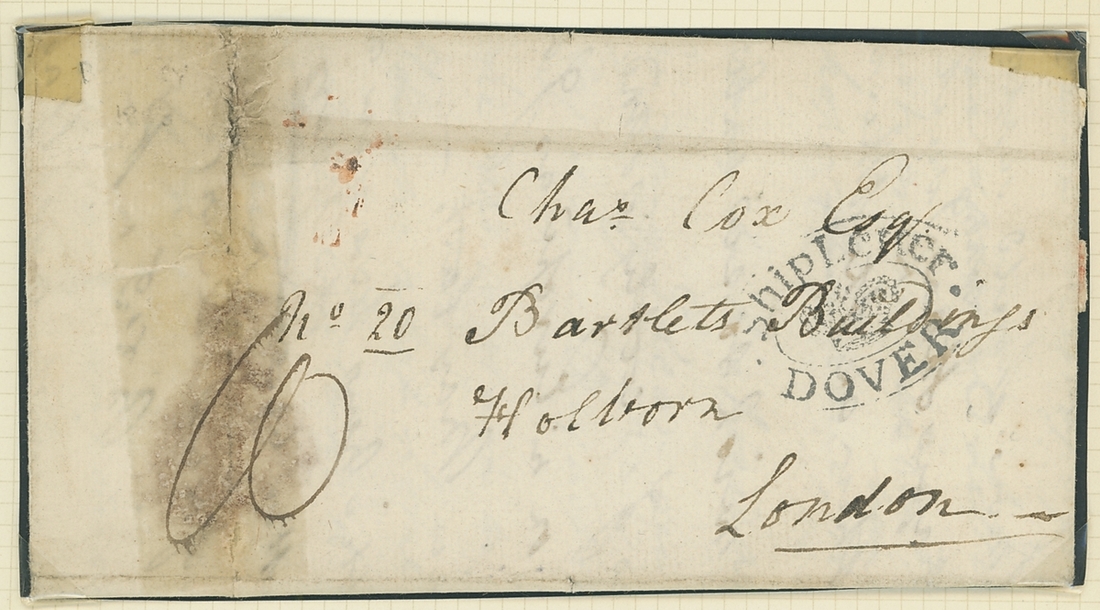 Chas. Cox Esqr
Ship Letter.
No 20 Bartlets Buildings
DOVER
Holborn
London